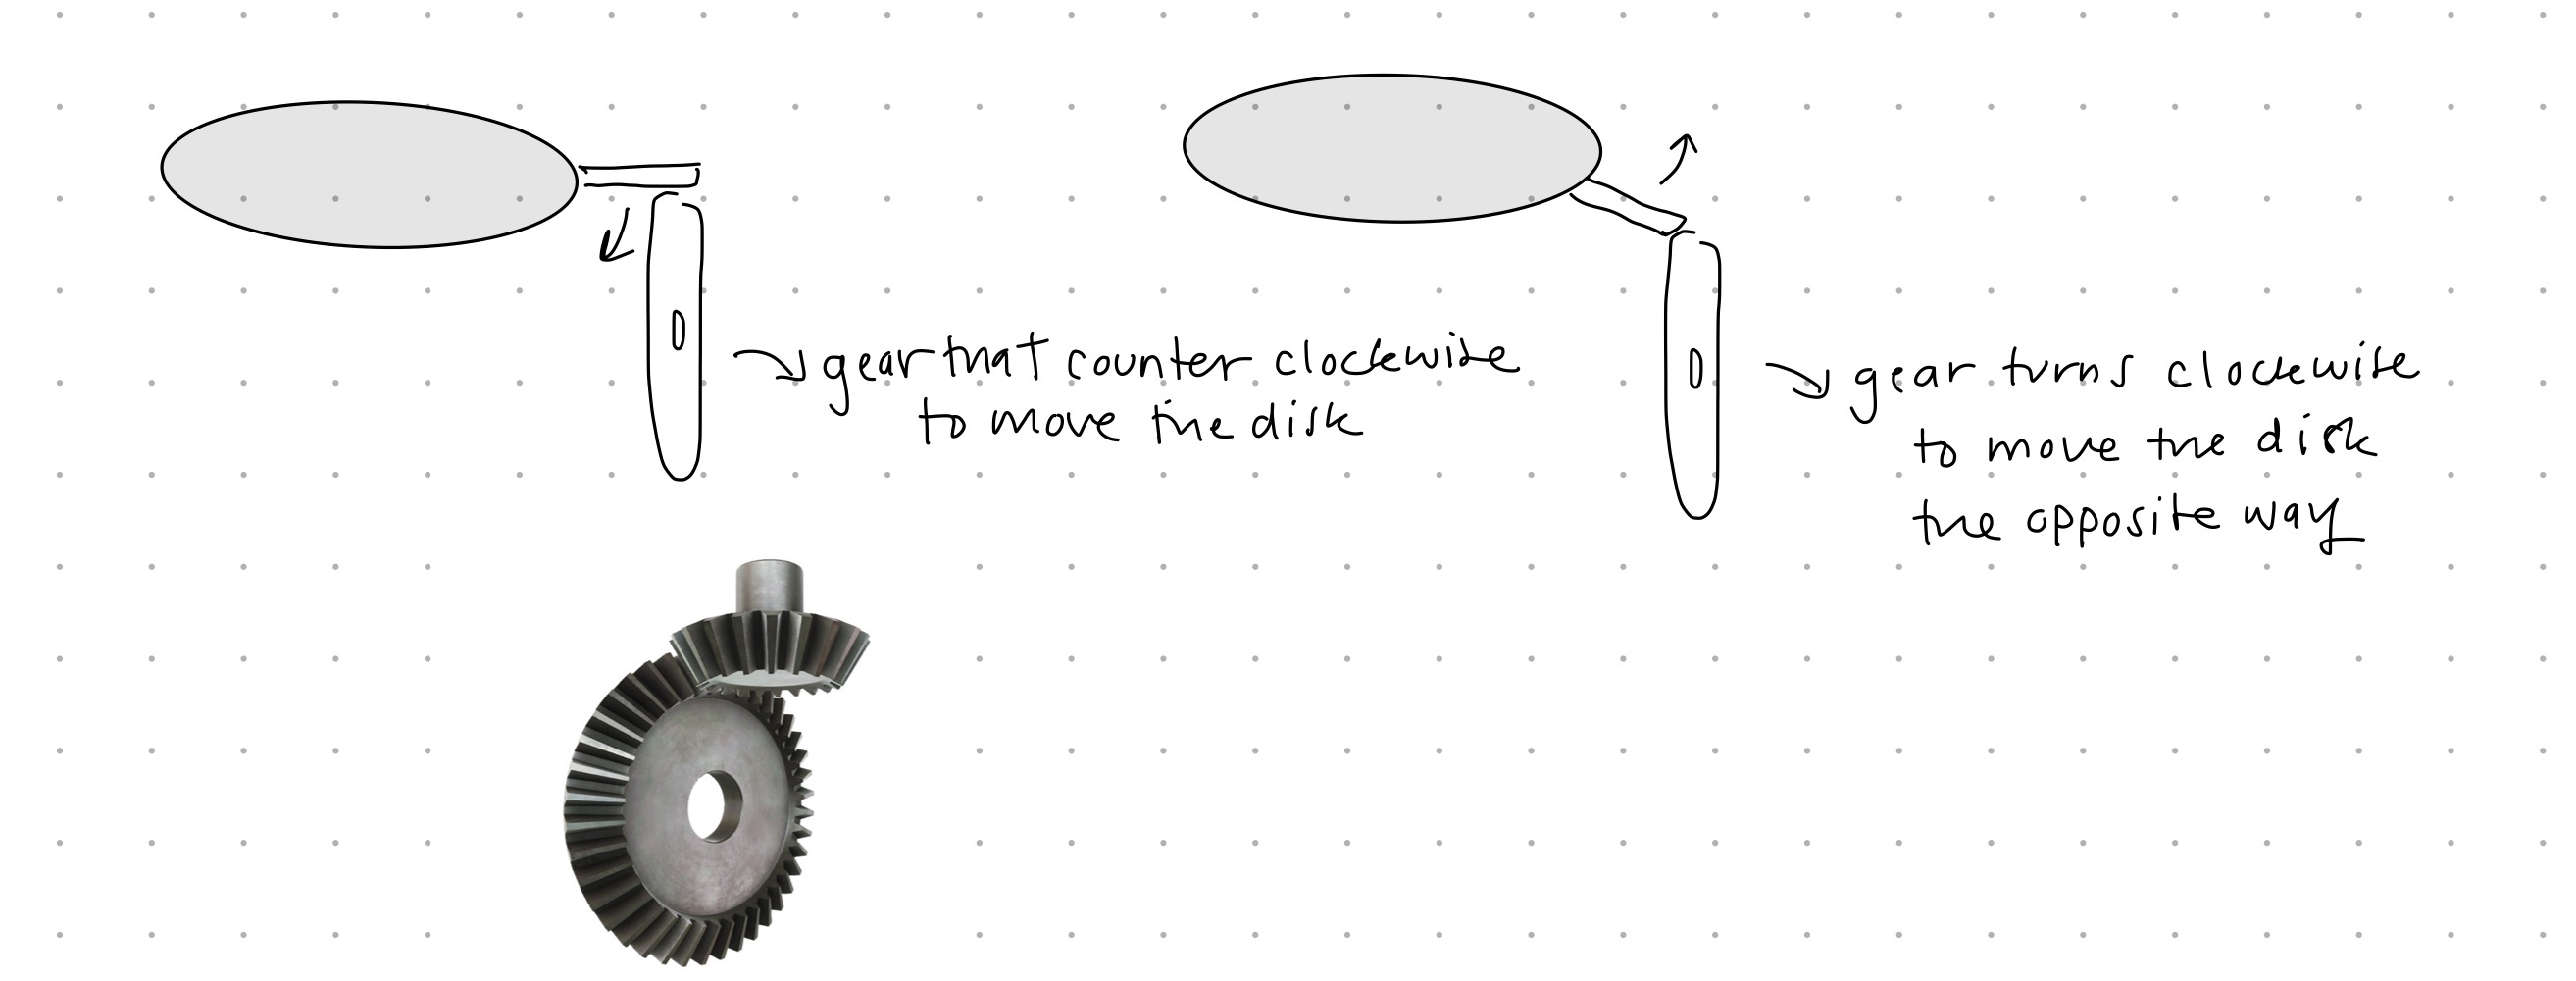 gear that counter clockwise
to move the disk
gear turns clockwise
to move the disk
the opposite way